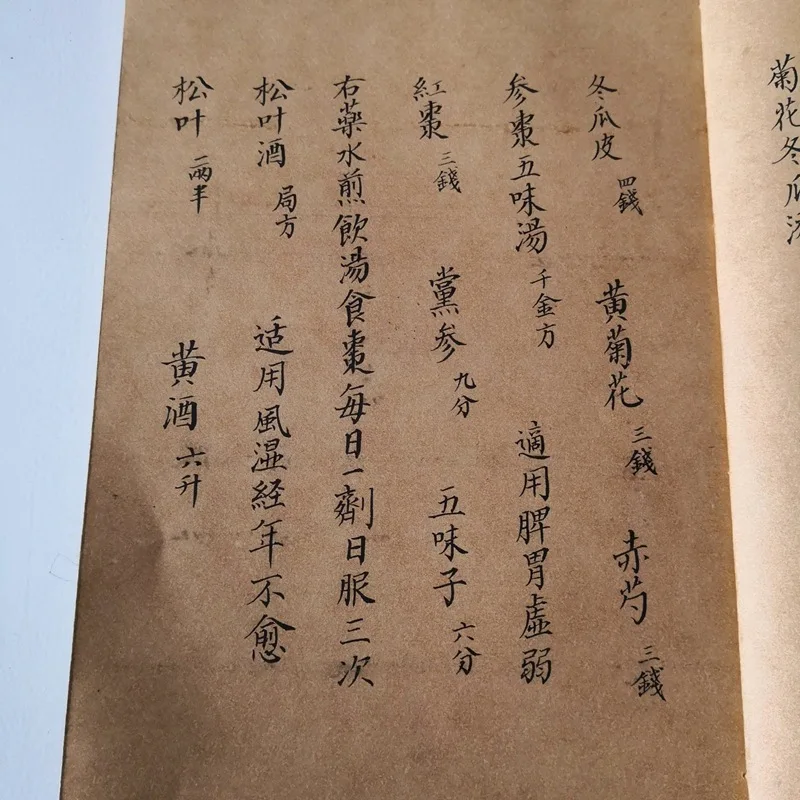 菊花冬瓜汤
冬瓜皮 四錢 黄菊花 三錢 赤芍 三錢
参棗五味湯 千金方 適用脾胃虚弱
紅棗 三錢 黨参 九分 五味子 六分
右藥水煎飲湯食棗每日一劑日服三次
松叶酒 局方 适用風湿経年不愈
松叶 二兩半 黄酒 六升